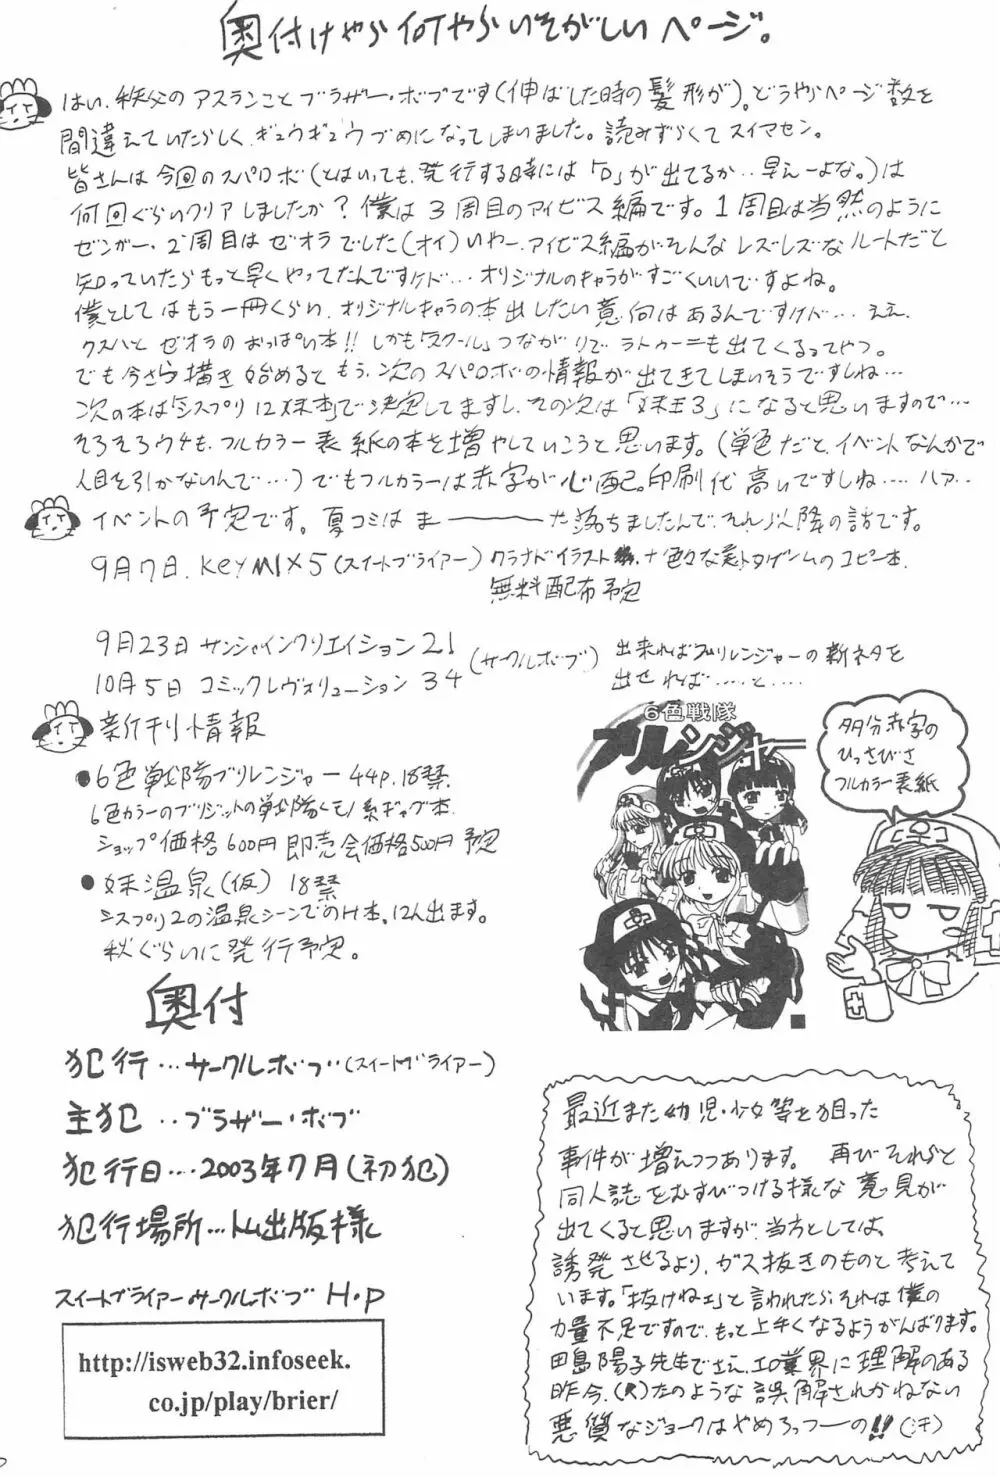 奥付けやら何やらいそがしいページ。
はい、秩父のアスランことブラザー・ボブです(伸ばした時の髪形が)。どうやらページ数を
間違えていたらしく、ギュウギュウづめになってしまいました。読みずらくてスイマセン。
皆さんは今回のスパロボ(とはいっても、発行する時には「D」が出てるか‥早えーよな。)は
何回ぐらいクリアしましたか?僕は3周目のアイビス編です。1周目は当然のように
ゼンガー、2周目はゼオラでした(オイ)いやー、アイビス編がそんなレズレズなルートだと
知っていたらもっと早くやってたんですけド…オリジナルのキャラがすごくいいですよね。
僕としてはもう一冊くらい、オリジナルキャラの本出したい意向はあるんですけド…ええ、
クスハとゼオラのおっぱい本!!しかも「スクール」つながりでラトゥーニも出てくるってやつ。
でも今さら描き始めるともう、次のスパロボの情報が出てきてしまいそうですしね…
次の本は「シスプリ12妹本」で決定してますし、その次は「妹王3」になると思いますので…
そろそろウチも、フルカラー表紙の本を増やしていこうと思います。(単色だと、イベントなんかで
人目を引かないんで…)でもフルカラーは赤字が心配。印刷代高いですしね‥‥ハァ‥
イベントの予定です。夏コミはまーーーた落ちましたんで、それ以降の話です。
9月7日、KeyMIX5(スイートブライアー)
クラナドイラスト集+色々な美少女ゲームのコピー本、
無料配布予定
9月23日 サンシャインクリエイション21
10月5日 コミックレヴォリューション34
(サークルボブ)
出来ればブリレンジャーの新ネタを
出せれば……と……
新刊情報
●6色戦隊ブリレンジャー 44P、18禁
6色カラーのブリジットの戦隊モノ系ギャグ本
ショップ価格600円 即売会価格500円 予定
●妹温泉(仮) 18禁
シスプリ2の温泉シーンでのH本。12人出ます。
秋ぐらいに発行予定。
6色戦隊
ブリレンジャー
多分赤字の
ひっさびさ
フルカラー表紙
奥付
犯行…サークルボブ(スイートブライアー)
主犯‥ブラザー・ボブ
犯行日…2003年7月(初犯)
犯行場所…トム出版様
スイートブライアーサークルボブ H・P
http://isweb32.infoseek.
co.jp/play/brier/
最近また幼児・少女等を狙った
事件が増えつつあります。再びそれらと
同人誌をむすびつける様な意見が
出てくると思いますが、当方としては、
誘発させるより、ガス抜きのものと考えて
います。「抜けねェ」と言われたら、それは僕の
力量不足ですので、もっと上手くなるようがんばります。
田島陽子先生でさえ、エロ業界に理解のある
昨今、たのような誤解されかねない
悪質なジョークはやめろっつーの!!(汗)